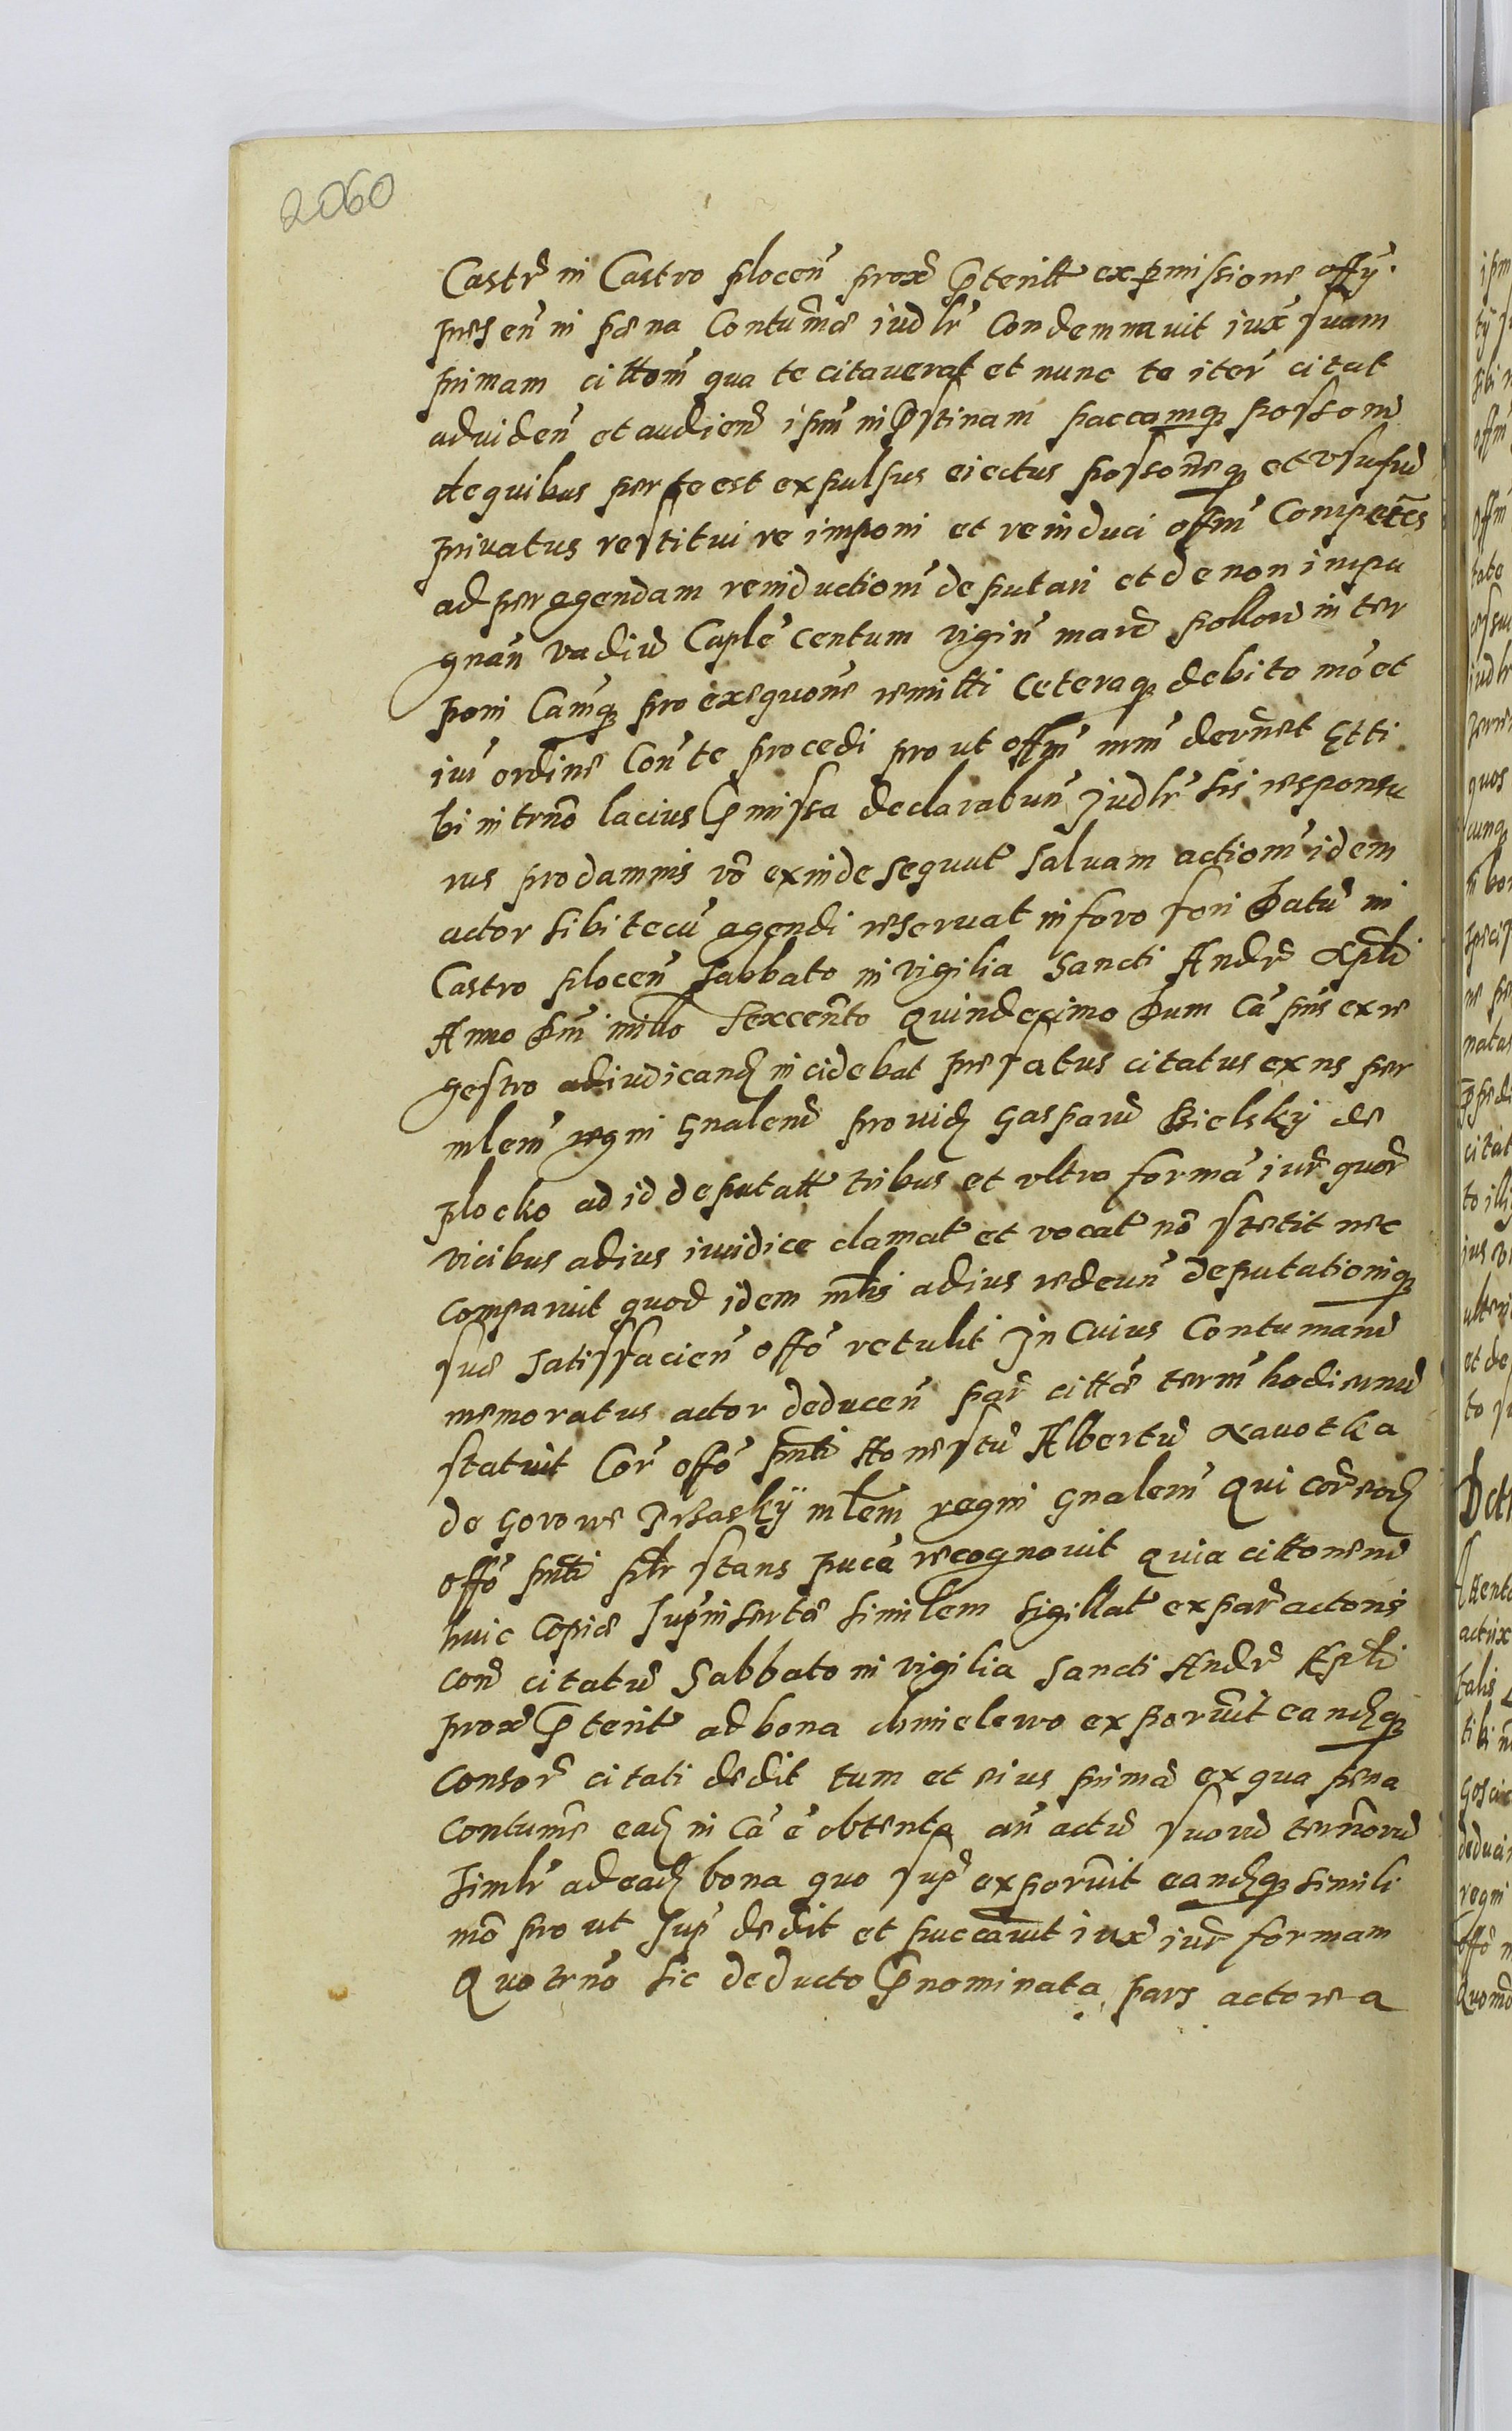 2060
Castr̃ in Castro plocen̄ prox̃ p̱terit̃ ex p̱missione offÿ.
presen̄ in pœna Contumaciæ iudlr̃ Condemnauit iux̃ suam
primam cittom̃ qua te citauerat et nunc te iter̃ citat
ad viden̄ et audien̄ ipm̃ in p̱stinam paccamq; possom̃
de quibus per te est expulsus eiectus possoneq; et vsufrũ
priuatus restitui re imponi et reinduci offm̃ Competẽs
ad peragendam reinductiom̃ deputari et de non impu
gnan̄ vadiũ Caplẽ centum vigin̄ marc̃ pollonũ inter
poni Camq; pro exequone remitti ceteraq; debito mõ et
iur̃ ordine Con̄ te procedi prout offm̃ inm̃ dec̃net Et ti
bi in trno̅ lacius p̱missa declarabun̄ Judlr̃ sis responsu
rus pro damnis võ exinde sequut̃ saluam actiom̃ idem
actor sibi tecũ agendi reseruat in foro fori Datũ in
Castro plocen̄ sabbato in vigilia Sancti Andr̃ Apłi
Anno Dni millo sexcento quindecimo Dum Ca p̃ns ex re
gestro adiudicand; incidebat prefatus citatus ex ns per
mlem̃ regni gnalem̃ provid; Gaspar̃ Bielskÿ de
plocko ad id deputatt̃ tribus et vltra formã iur̃ quor̃
vicibus ad ius iuridice clamat̃ et vocat̃ nõ stetit nec
comparuit quod idem mlis ad ius redeun̄ deputationiq;
sue satisfacien̄ offõ retulit In Cuius Contumam̃
memoratus actor deducen̄ par̃ cittæ term̃ hodiernũ
statuit Cor̃ offõ pñti Honestũ Albertũ Kauotka
de Gorowe Prsaskÿ mlem̃ regni gnalem̃ Qui cor̃ eod;
offõ pñti plr̃ stans pucẽ recognouit quia cittonem̃
huic copiæ supinsertæ similem sigillat̃ ex par̃ actoris
con̄ citatũ Sabbato in vigilia Sancti Andr̃ Apłi
prox̃ p̱terit̃ ad bona chmielewo exporuit eand;q;
consor̃ citati dedit tum et eius primã ex qua pena
contume ead; in Ca e obtenta an̄ actũ suorũ ternorũ
simlr̃ ad ead; bona quo sup̃ exporuit eand;q; simili
mõ prout sup̃ dedit et puccauit iux̃ iur̃ formam
Quo trno̅ sic deducto p̱nominata pars actorea